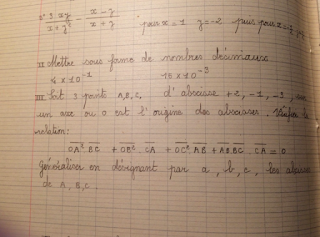 3 xy / x+y² - x-y / x+y pour x=1 y=-2 puis pour x=
II Mettre sous forme de nombres décimaux
4 x 10⁻¹ 15 x 10⁻³
III Soit 3 points A, B, C, d'abscisse +2, -1, -3, sur
un axe ou O est l'origine des abscisses. Vérifier la
relation:
OA² BC + OB² . CA + OC² AB + AB.BC . CA = 0
généraliser en désignant par a, b, c, les abscisses
de A, B, C.